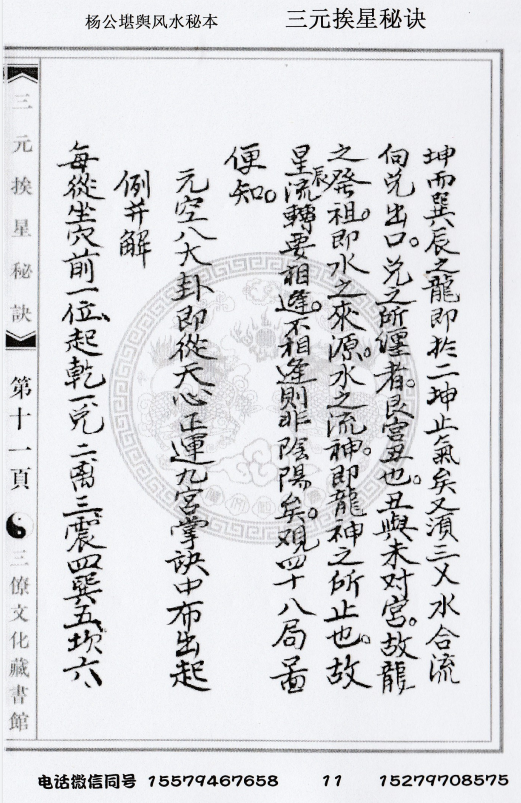 杨公堪舆风水秘本
三元挨星秘诀
坤而巽辰之龍即於二坤止氣矣又須三乂水合流
向兑出口。兑之所纏者。艮宫丑也。丑與未对宫。故龍
之發祖。即水之來源。水之流神。即龍神之所止也。故
星辰流轉要相逢。不相逢則非陰陽矣。观四十八局啚
便知。
元空八大卦即從天心正運九宫掌訣中布出起
例并解
每從坐穴前一位起乾一、兑二离三、震四巽五、坎六、
三元挨星秘訣
第十一頁
三僚文化藏書館
电话微信同号 15579467658 11 15279708575